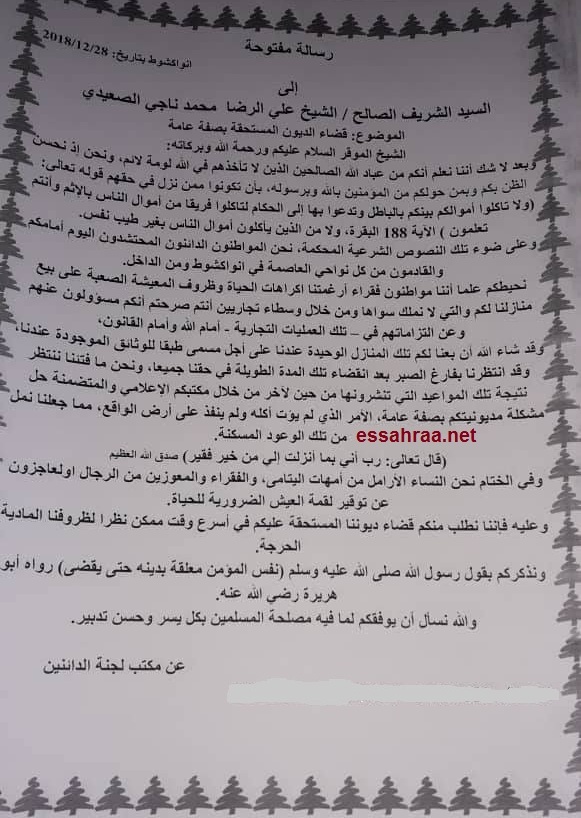 رسالة مفتوحة
انواكشوط بتاريخ: 2018/12/28
إلى
السيد الشريف الصالح / الشيخ علي الرضا محمد ناجي الصعيدي
الموضوع: قضاء الديون المستحقة بصفة عامة
الشيخ الموقر السلام عليكم ورحمة الله وبركاته:
وبعد لا شك أننا نعلم أنكم من عباد الله الصالحين الذين لا تأخذهم في الله لومة لائم، ونحن إذ نحسن
الظن بكم وبمن حولكم من المؤمنين بالله وبرسوله، بأن تكونوا ممن نزل في حقهم قوله تعالى:
(ولا تاكلوا أموالكم بينكم بالباطل وتدعوا بها إلى الحكام لتاكلوا فريقا من أموال الناس بالإثم وأنتم
تعلمون ) الآية 188 البقرة، ولا من الذين يأكلون أموال الناس بغير طيب نفس.
وعلى ضوء تلك النصوص الشرعية المحكمة، نحن المواطنون الدائنون المحتشدون اليوم أمامكم
والقادمون من كل نواحي العاصمة في انواكشوط ومن الداخل.
نحيطكم علما أننا مواطنون فقراء أرغمتنا اكراهات الحياة وظروف المعيشة الصعبة على بيع
منازلنا لكم والتي لا نملك سواها ومن خلال وسطاء تجاريين أنتم صرحتم أنكم مسؤولون عنهم
وعن التزاماتهم في – تلك العمليات التجارية - أمام الله وأمام القانون،
وقد شاء الله أن بعنا لكم تلك المنازل الوحيدة عندنا على أجل مسمى طبقا للوثائق الموجودة عندنا،
وقد انتظرنا بفارغ الصبر بعد انقضاء تلك المدة الطويلة في حقنا جميعا، ونحن ما فتئنا ننتظر
نتيجة تلك المواعيد التي تنشرونها من حين لآخر من خلال مكتبكم الإعلامي والمتضمنة حل
مشكلة مديونيتكم بصفة عامة، الأمر الذي لم يؤت أكله ولم ينفذ على أرض الواقع، مما جعلنا نمل
من تلك الوعود المسكنة. essahraa.net
(قال تعالى: رب أني بما أنزلت إلي من خير فقير) صدق الله العظيم
وفي الختام نحن النساء الأرامل من أمهات اليتامى، والفقراء والمعوزين من الرجال اولعاجزون
عن توفير لقمة العيش الضرورية للحياة.
وعليه فإننا نطلب منكم قضاء ديوننا المستحقة عليكم في أسرع وقت ممكن نظرا لظروفنا المادية
الحرجة.
ونذكركم بقول رسول الله صلى الله عليه وسلم (نفس المؤمن معلقة بدينه حتى يقضى) رواه أبو
هريرة رضي الله عنه.
والله نسأل أن يوفقكم لما فيه مصلحة المسلمين بكل يسر وحسن تدبير.
عن مكتب لجنة الدائنين